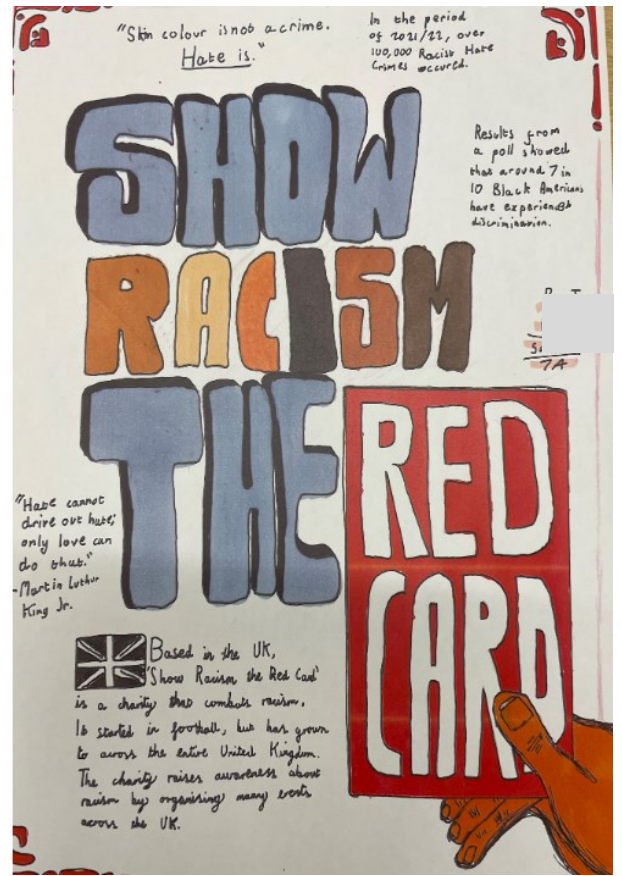 "Skin colour is not a crime.
Hate is."
In the period
of 2021/22, over
100,000 Racist Hate
Crimes occured.
SHOW
Results from
a poll showed
that around 7 in
10 Black Americans
have experienced
discrimination.
RACISM
7A
THE
RED
CARD
"Hate cannot
drive out hate;
only love can
do that."
-Martin Luthur
King Jr.
Based in the UK,
'Show Racism the Red Card'
is a charity that combats racism.
It started in football, but has grown
to across the entire United Kingdom.
The charity raises awareness about
racism by organising many events
across the UK.